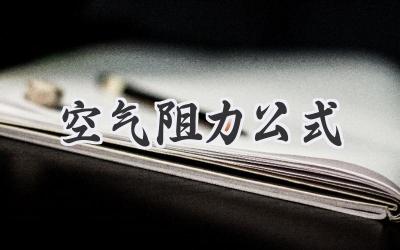 空气阻力公式